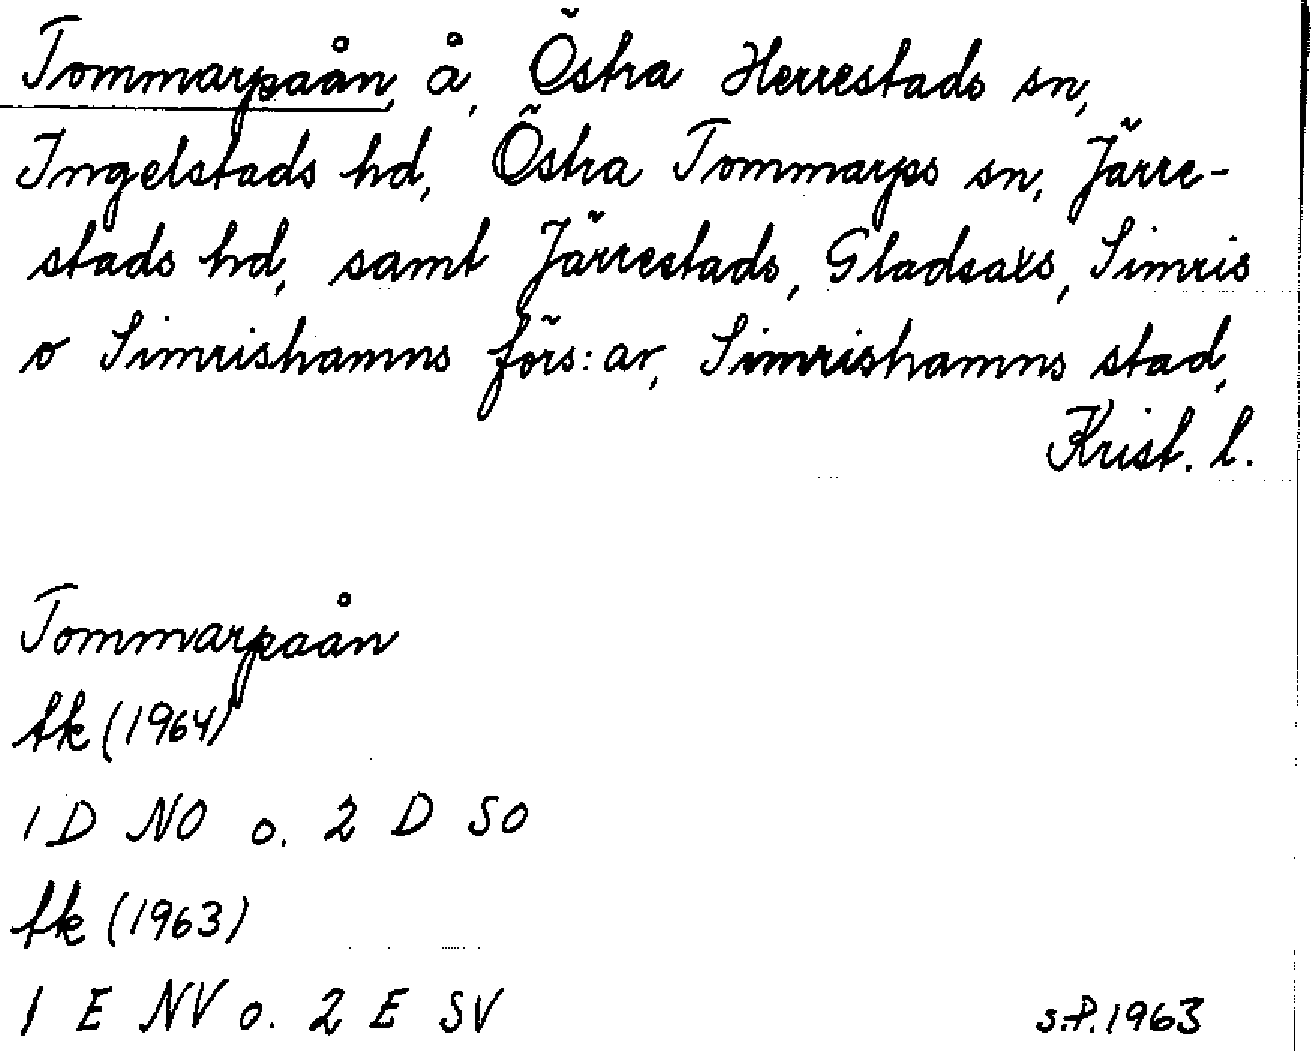 Tommarpaån, å, Östra Herrestads sn,
Ingelstads hd, Östra Tommarps sn, Järre-
stads hd, samt Järrestads, Gladsaxs, Simris
o Simrishamns förs:ar, Simrishamns stad,
Krist. l.
Tommarpaån
fk (1964)
1 D NO o. 2 D SO
fk (1963)
1 E NV o. 2 E SV
S.P. 1963